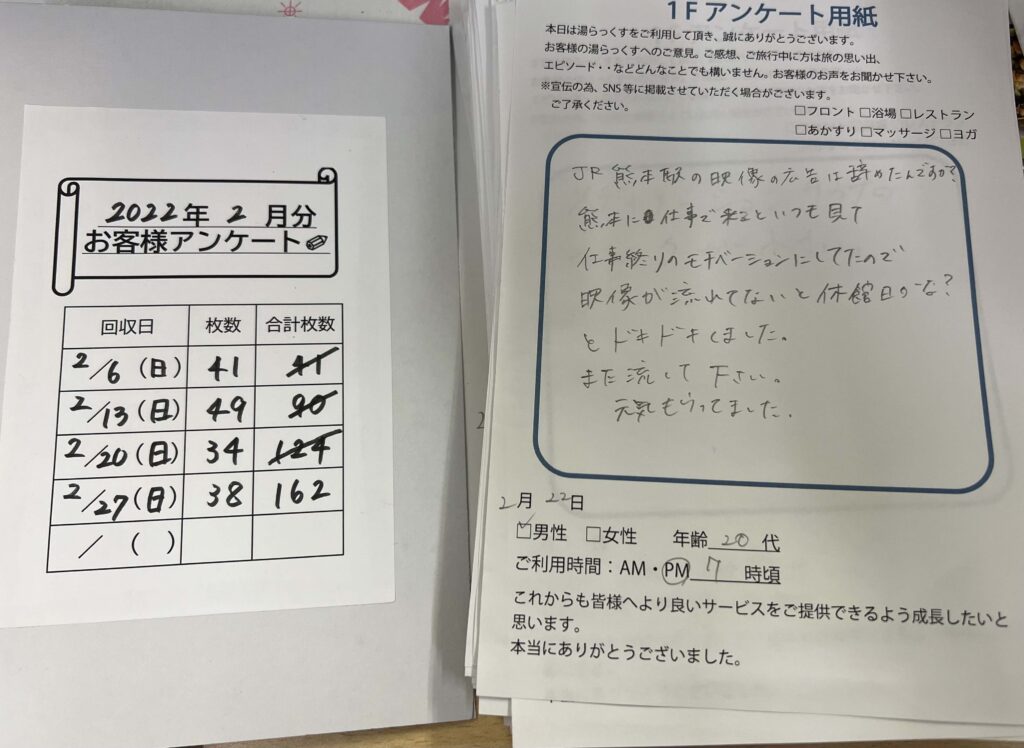 2022年 2 月分
お客様アンケート
回収日 枚数 合計枚数
2/6 (日) 41 41
2/13 (日) 49 90
2/20 (日) 34 124
2/27 (日) 38 162
/ ( )
1Fアンケート用紙
本日は湯らっくすをご利用して頂き、誠にありがとうございます。
お客様の湯らっくすへのご意見。ご感想、ご旅行中に方は旅の思い出、
エピソード・・などどんなことでも構いません。お客様のお声をお聞かせ下さい。
※宣伝の為、SNS等に掲載させていただく場合がございます。
ご了承ください。
□フロント □浴場 □レストラン
□あかすり □マッサージ □ヨガ
JR 熊本駅の映像の広告は辞めたんですか?
熊本に仕事で来るといつも見て
仕事終りのモチベーションにしてたので
映像が流れてないと休館日かな?
とドキドキしました。
また流して下さい。
元気もらってました.
2月 22日
☑男性 □女性 年齢 20 代
ご利用時間：AM・PM 7 時頃
これからも皆様へより良いサービスをご提供できるよう成長したいと
思います。
本当にありがとうございました。